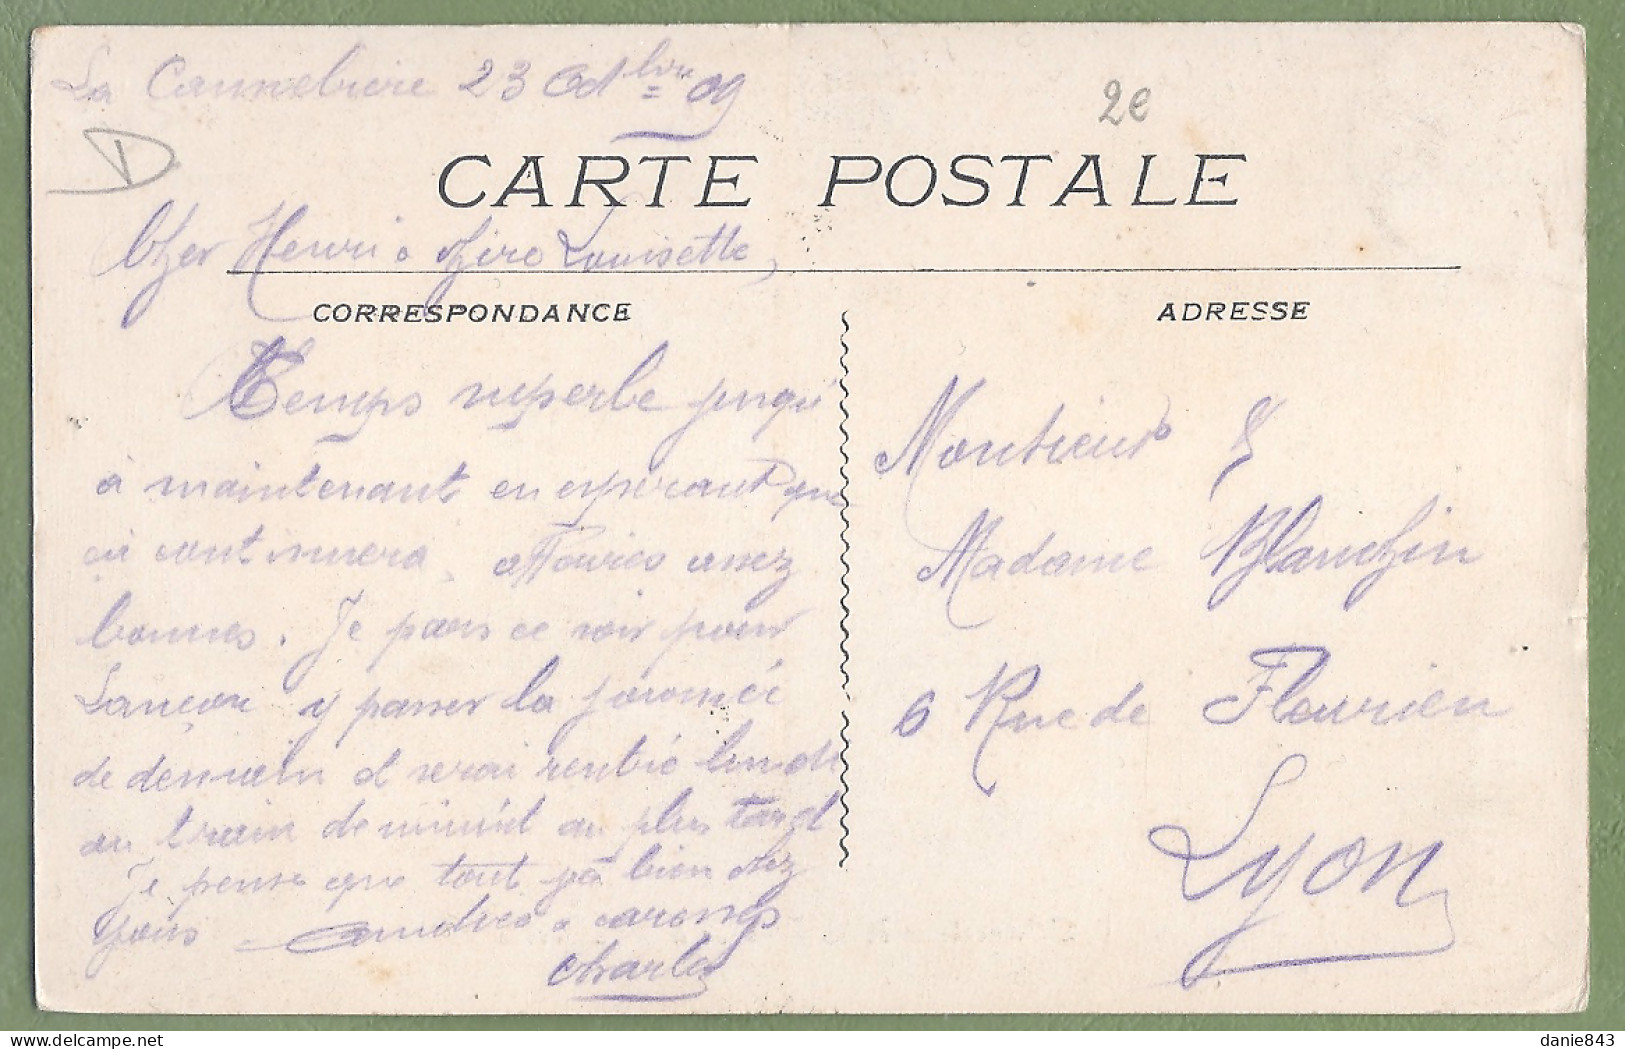 La Cannebiere 23 Octbre = 09
2e
D
CARTE POSTALE
Cher Henri & chère Louisette,
CORRESPONDANCE
ADRESSE
Temps superbe jusqu'
à maintenant en espérant que
ça continuera. Affaires assez
bonnes. Je pars ce soir pour
Lançon y passer la journée
de demain et serai rentré lundi
au train de minuit au plus tard
Je pense que tout va bien chez
vous tendres & caresses
Charles
Monsieur &
Madame Blanchin
6 Rue de Fleurieu
Lyon
danie843